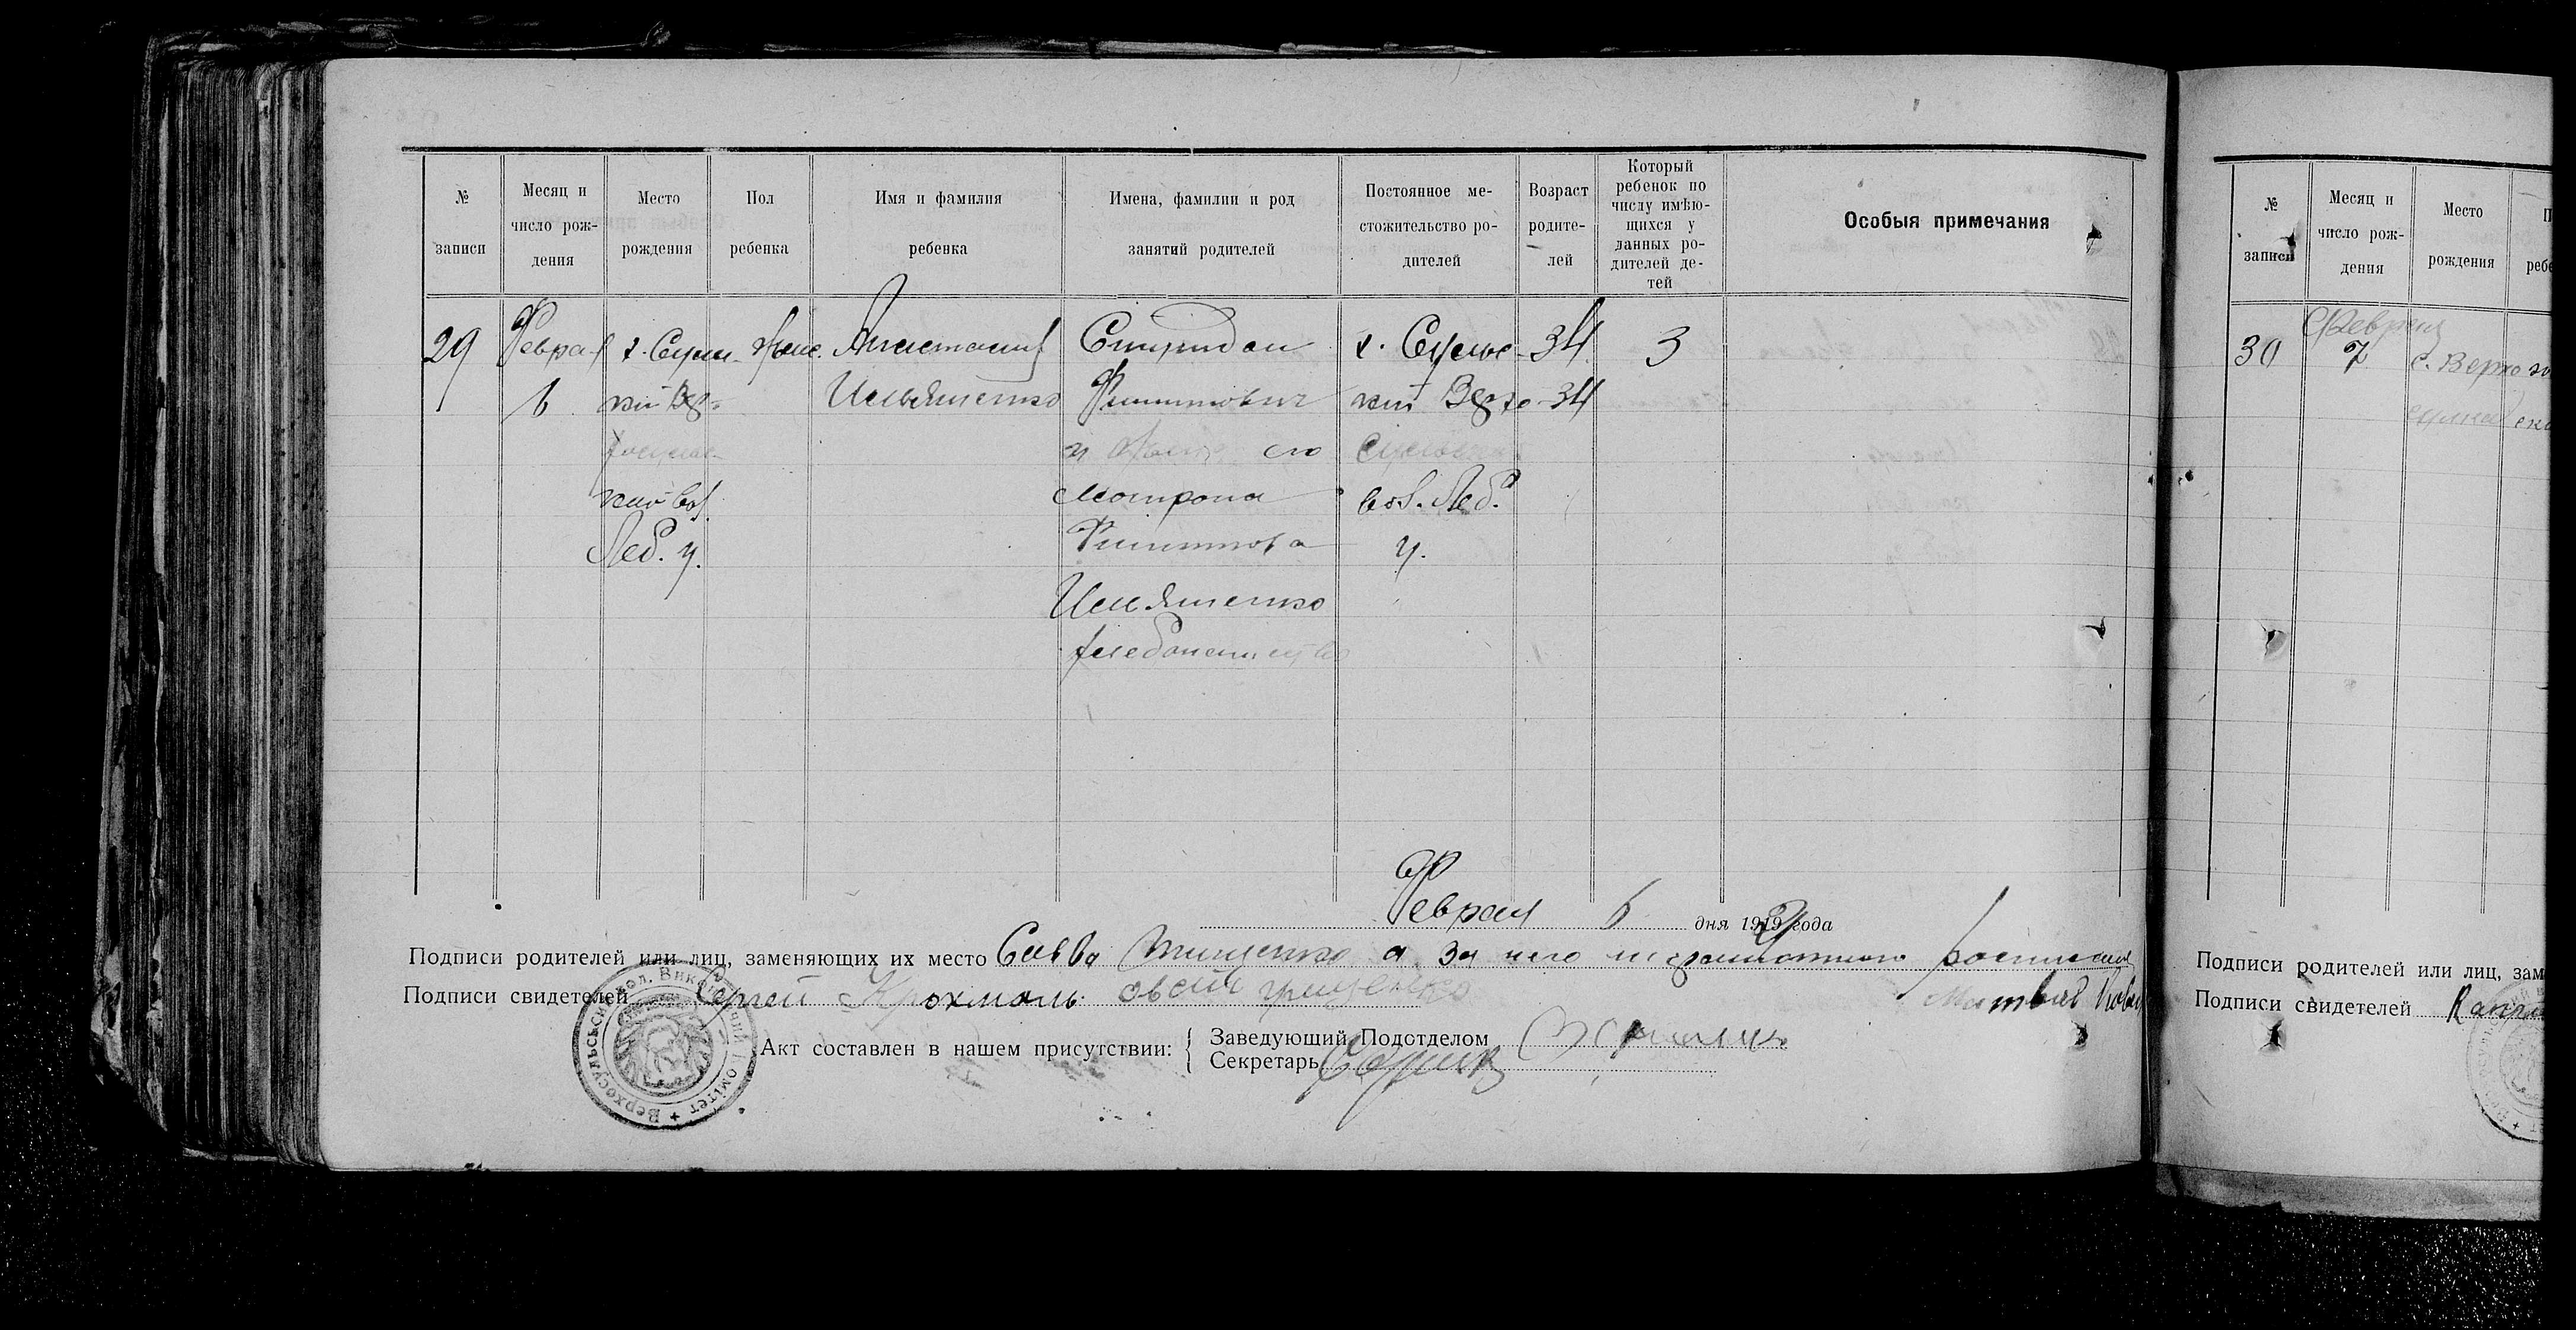 № записи
Месяц и число рождения
Место рождения
Пол ребенка
Имя и фамилия ребенка
Имена, фамилии и род занятий родителей
Постоянное местожительство родителей
Возраст родителей
Который ребенок по числу имѣющихся у данных родителей детей
Особыя примечания
29
Феврал
6
х. Сулс-
кий Вер-
хосулс-
кой вол.
Леб. у.
жен.
Анастасия
Ильяшенко
Спиридон
Филиппович
и жена его
Матрона
Филиппова
Ильяшенко
хлебопашество
х. Сулс-
кий Верхо-
сульской
вол. Леб.
у.
34
34
3
Феврал 6 дня 1919 года
Подписи родителей или лиц, заменяющих их место Савва Тищенко а за него неграмотного росписался
Матвей
Подписи свидетелей Сергей Крохмаль Грищенко
Акт составлен в нашем присутствии:
Заведующий Подотделом
Секретарь
Верхосульский Вол. Виконавчий Комітет
№ записи
Месяц и число рождения
Место рождения
30
Февраля
7
с. Верхо
Подписи родителей или лиц, зам
Подписи свидетелей